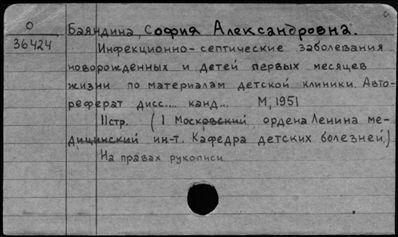 О
36424
Баяндина София Александровна.
Инфекционно-септические заболевания
новорожденных и детей первых месяцев
жизни по материалам детской клиники. Авто-
реферат дисс.... канд... М, 1951
11стр. (1 Московский ордена Ленина ме-
дицинский ин-т. Кафедра детских болезней.)
На правах рукописи